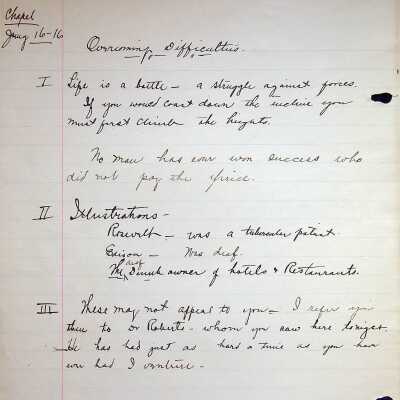 Chapel
Jany 16-16
Overcoming Difficulties.
I Life is a battle - a struggle against forces.
If you would coast down the incline you
must first climb the heights.
No man has ever won success who
did not pay the price.
II Illustrations -
Rosevelt - was a tubercular patient.
Edison - Was deaf.
The deaf & Dumb owner of hotels & Restaurants.
III These may not appeal to you - I refer you
then to Dr Roberts - whom you saw here tonight.
He has had just as hard a time as you have
ever had I venture -